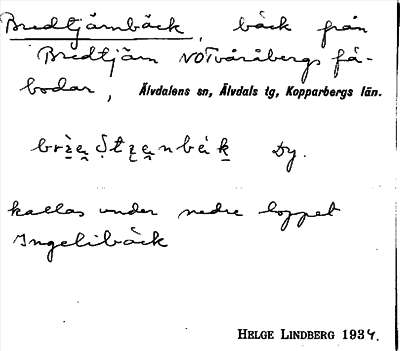 Bredtjärnbäck, bäck från
Bredtjärn NO Tvåråbergs få-
bodar, Älvdalens sn, Älvdals tg, Kopparbergs län.
Dy.
kallas under nedre loppet
Ingelibäck
HELGE LINDBERG 1934.